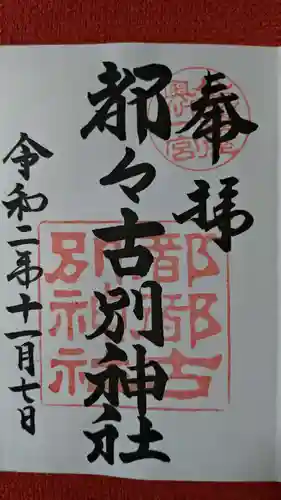 奉拝
都々古別神社
令和二年十一月七日
都都古
別神社